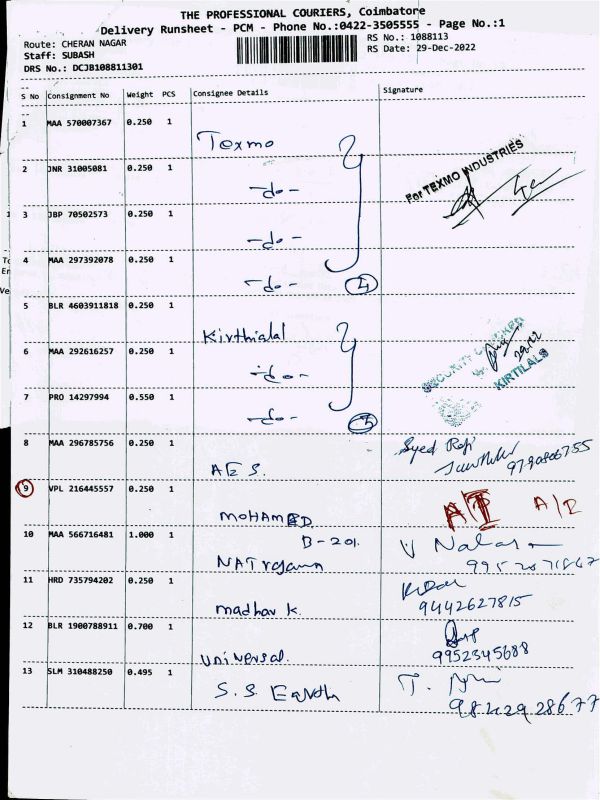 THE PROFESSIONAL COURIERS, Coimbatore
Delivery Runsheet - PCM - Phone No.:0422-3505555 - Page No.:1
Route: CHERAN NAGAR RS No.: 1088113
Staff: SUBASH RS Date: 29-Dec-2022
DRS No.: DCJB108811301
S No Consignment No Weight PCS Consignee Details Signature
1 MAA 570007367 0.250 1
Texmo
2 JNR 31005081 0.250 1
-do-
For TEXMO INDUSTRIES
3 JBP 70502573 0.250 1
-do-
4 MAA 297392078 0.250 1
-do- 4
5 BLR 4603911818 0.250 1
Kirthialal
6 MAA 292616257 0.250 1
-do-
SECURITY CHECKED
29/12
KIRTILALS
7 PRO 14297994 0.550 1
-do- 3
8 MAA 296785756 0.250 1
A E S.
Syed Rafi
9 VPL 216445557 0.250 1
MOHAMED.
A/R
10 MAA 566716481 1.000 1
B-201.
NATrajana
11 HRD 735794202 0.250 1
madhav k.
9442627815
12 BLR 1900788911 0.700 1
universal.
9952345688
13 SLM 310488250 0.495 1
S. S. Earth